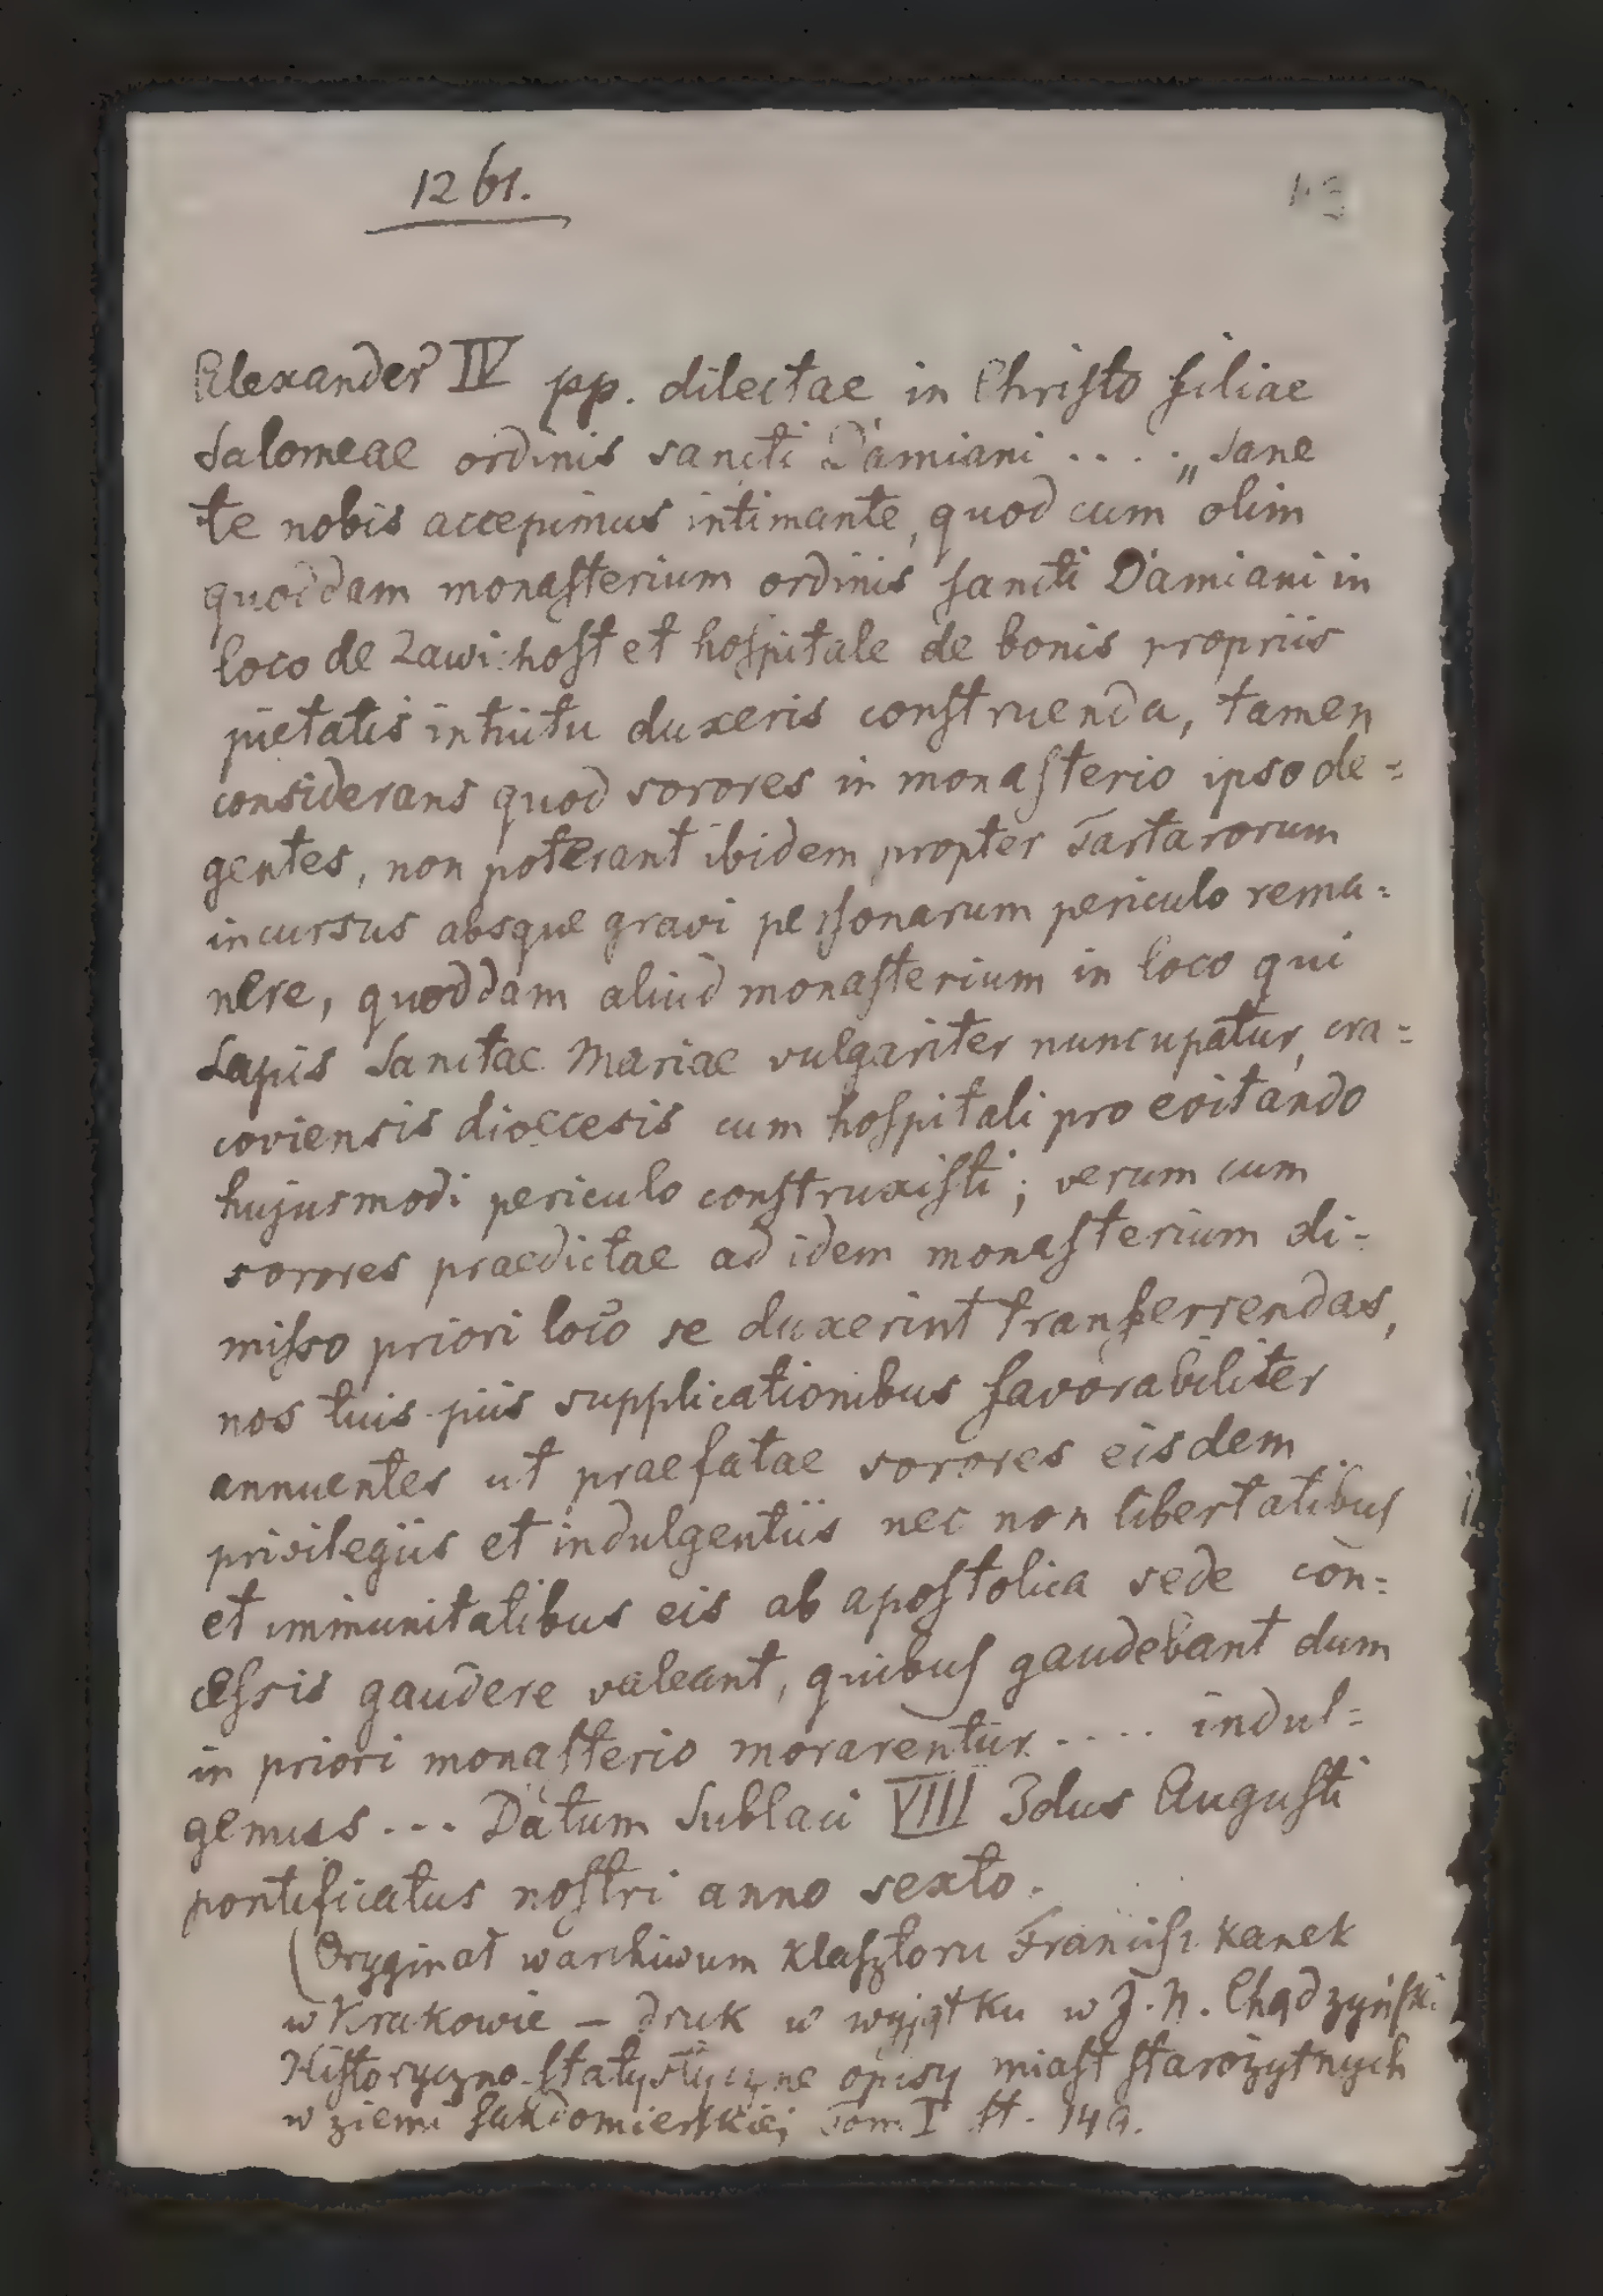 1261.
Alexander IV pp. dilectae in Christo filiae
Salomeae ordinis sancti Damiani .... „Sane
te nobis accepimus intimante, quod cum olim
quoddam monasterium ordinis sancti Damiani in
loco de Zawichost et hospitale de bonis propriis
pietatis intuitu duxeris construenda, tamen
considerans quod sorores in monasterio ipso de=
gentes, non poterant ibidem propter Tartarorum
incursus absque gravi personarum periculo rema=
nere, quoddam aliud monasterium in loco qui
Lapis Sanctae Mariae vulgariter nuncupatur, cra=
coviensis dioecesis cum hospitali pro evitando
hujusmodi periculo construxisti; verum cum
sorores praedictae ad idem monasterium di=
misso priori loco se duxerint transferrendas,
nos tuis piis supplicationibus favorabiliter
annuentes ut praefatae sorores eisdem
privilegiis et indulgentiis nec non libertatibus
et immunitatibus eis ab apostolica sede con=
cessis gaudere valeant, quibus gaudebant dum
in priori monasterio morarentur .... indul=
gemus ... Datum Sublaci VIII Idus Augusti
pontificatus nostri anno sexto.
(Oryginał w archiwum klasztoru Franciszkanek
w Krakowie – druk w wyjątku w J. N. Chądzyński
Historyczno-statystyczne opisy miast starożytnych
w ziemi Sandomierskiej Tom I st.